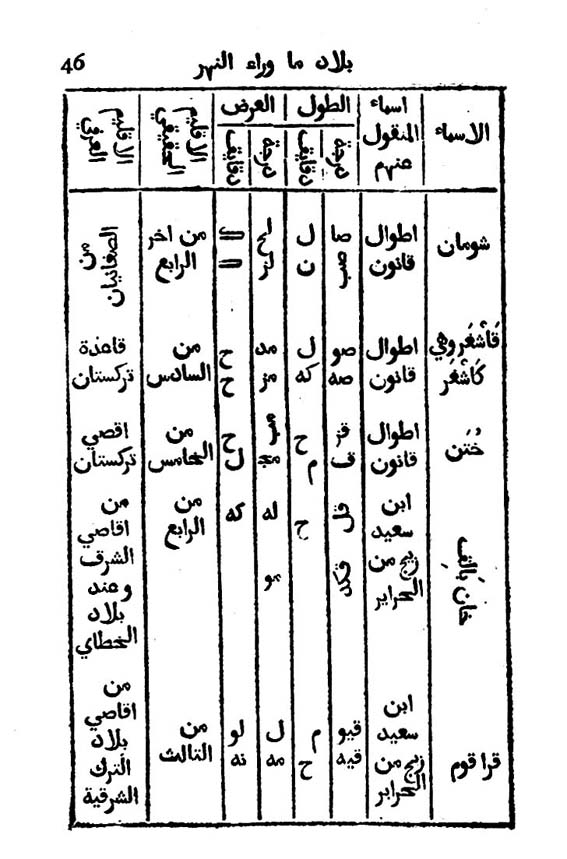 46 بلاد ما وراء النهر
الاسماء
اسماء المنقول عنهم
الطول
درجة
دقايق
العرض
درجة
دقايق
الاقليم الحقيقي
الاقليم العرفي
شومان
اطوال ... صا ل لح
قانون ... صب ن لز
من اخر الرابع
من الصغانيان
قَاشْغَر وهي كَاشْغَر
اطوال صو ل مد ح
قانون صه كه مز ح
من السادس
قاعدة تركستان
خُتَن
اطوال قز ح مب ح
قانون ق م مج ل
من الخامس
اقصي تركستان
خان بَالِق
ابن سعيد ح له كه
زيج من الحراير قكد مو
من الرابع
من اقاصي الشرق وعند بلاد الخطاي
قرا قوم
ابن سعيد قيو م ل لو
زيج من الحراير قيه ح مه نه
من الثالث
من اقاصي بلاد الترك الشرقية